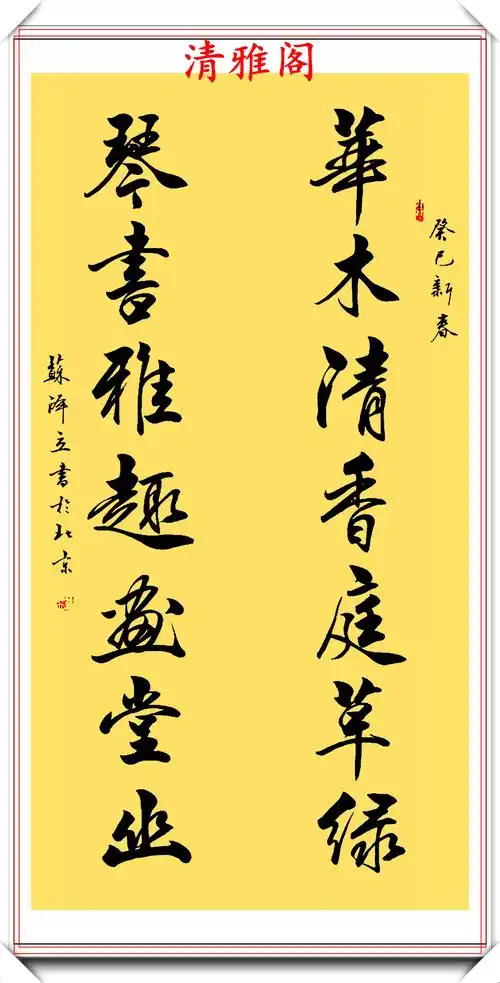 清雅阁
癸巳新春
華木清香庭草緑
琴書雅趣畫堂幽
蘇澤立書於北京